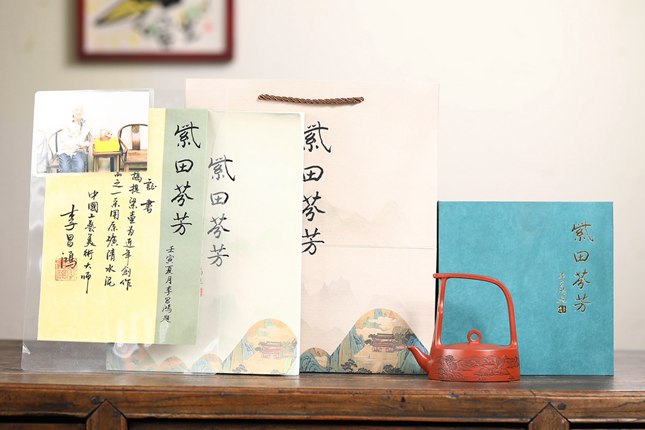 紫田芬芳
壬寅夏月李昌鴻题
証書
橋提梁壶為近年創作
之一采用原礦清水泥
中國工藝美術大師
李昌鴻
紫田芬芳
紫田芬芳
紫田芬芳